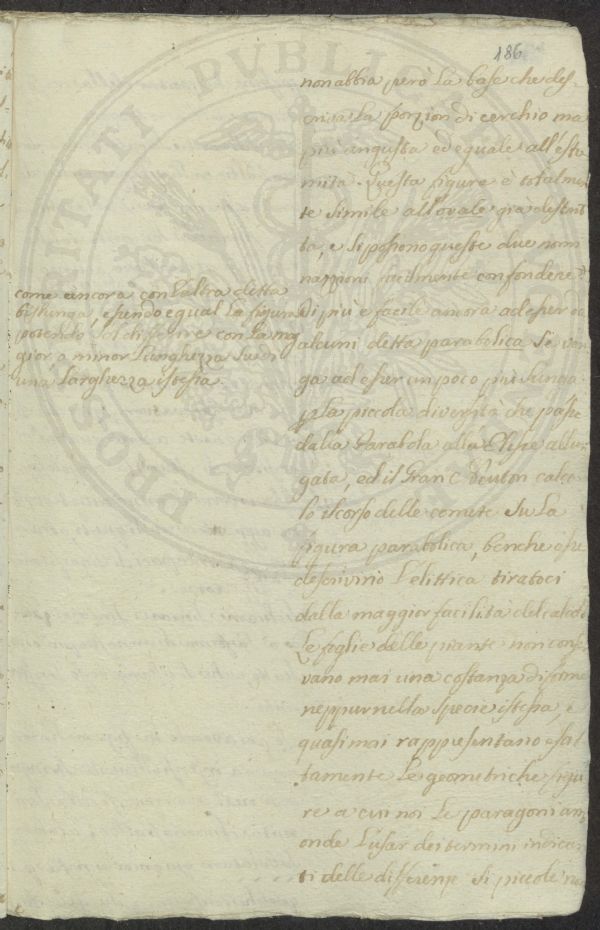 186
non abbia però la base che des-
criva la porzion di cerchio ma
più angusta ed eguale all'estre
mità. Questa figura è totalmen
te simile all'ovale gia descrit
ta, e si possono queste due nomi
nazioni facilmente confondere
di più è facile ancora ad esser da
alcuni detta parabolica se ven
ga ad esser un poco più lunga
p la piccola diversità che passa
dalla Parabola alla Elise allun
gata, ed il Gran C. Neuton calco
lo il corso delle comete su la
figura parabolica, benche esse
descrivino l'elittica tiratoci
dalla maggior facilità del calcolo
Le foglie delle piante non conser
vano mai una costanza di forme
neppur nella specie istessa, e
quasi mai rappresentano esat
tamente le geometriche figu
re a cui noi le paragoniam
onde l'usar dei termini indican
ti delle differenze si piccole non
come ancora con l'altra detta
bislunga, essendo egual la figura
potendo sol differire con la mag
gior o minor lunghezza su di
una larghezza istessa.
PROSPERITATI PUBLICAE